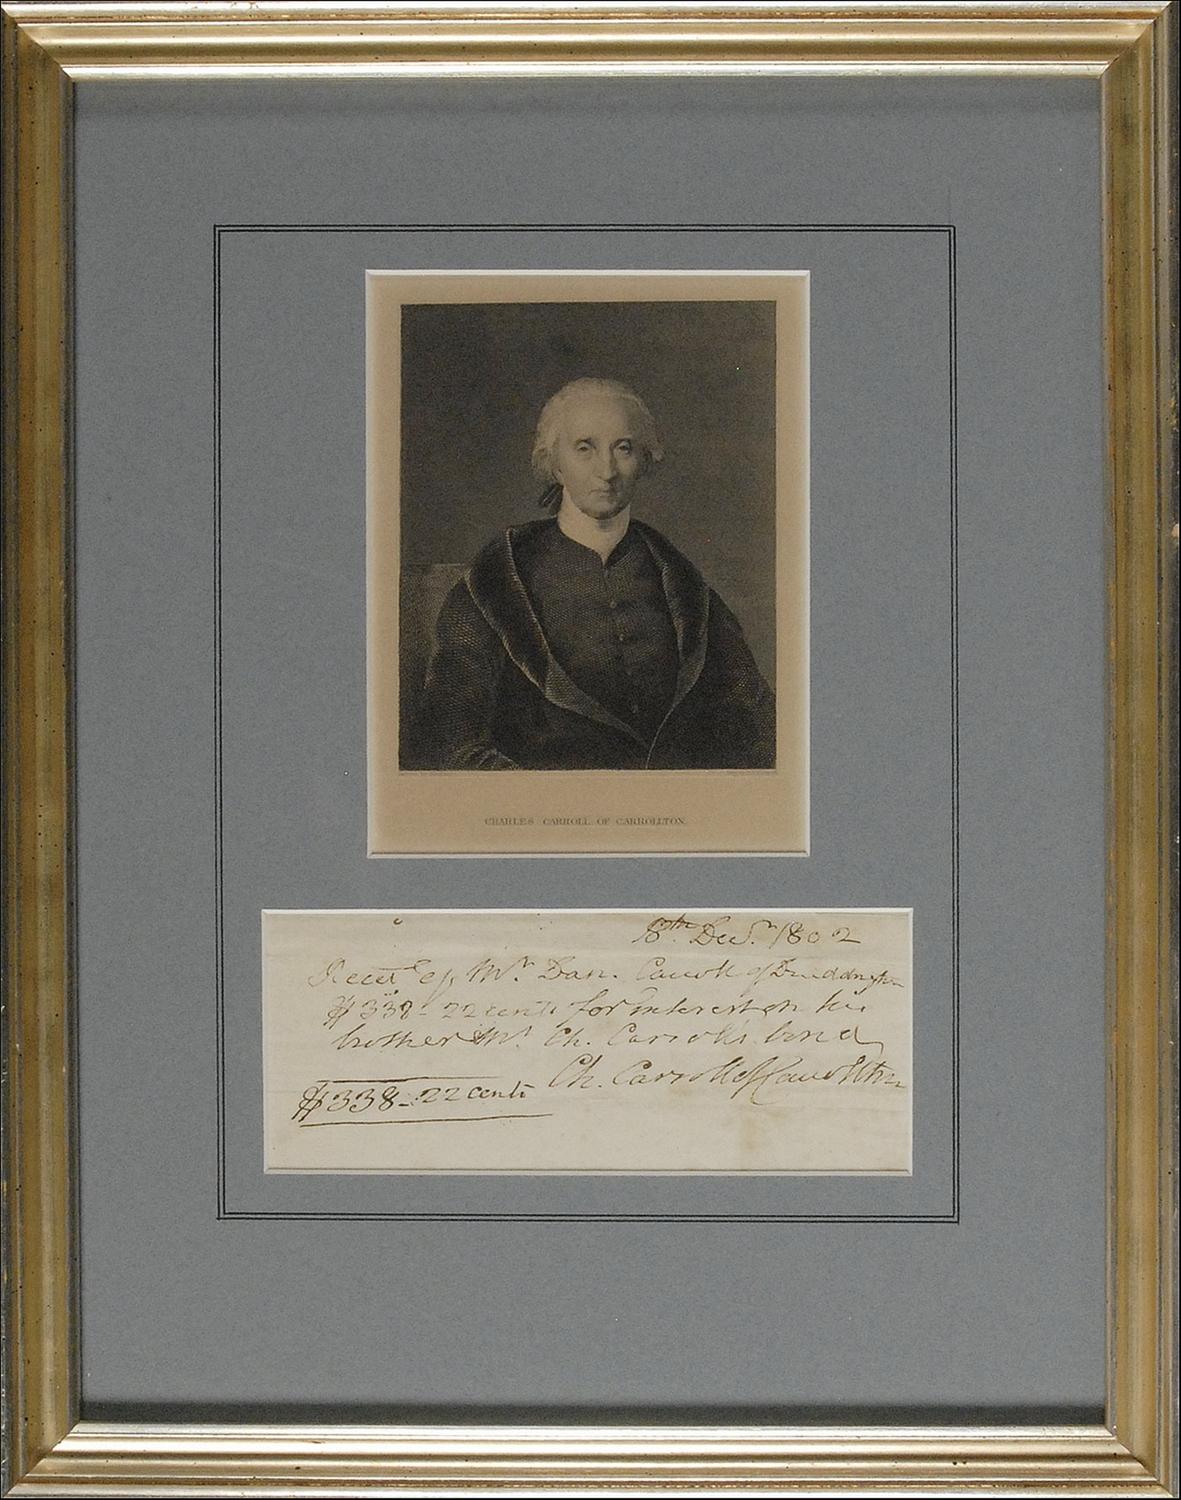 CHARLES CARROLL OF CARROLLTON.
8th Decr. 1802
Recd of Mr. Dan. Carroll of Duddington
$338-22 cents for interest on his
brother Mr. Ch. Carroll's bond
Ch. Carroll of Carrollton
$338-22 cents